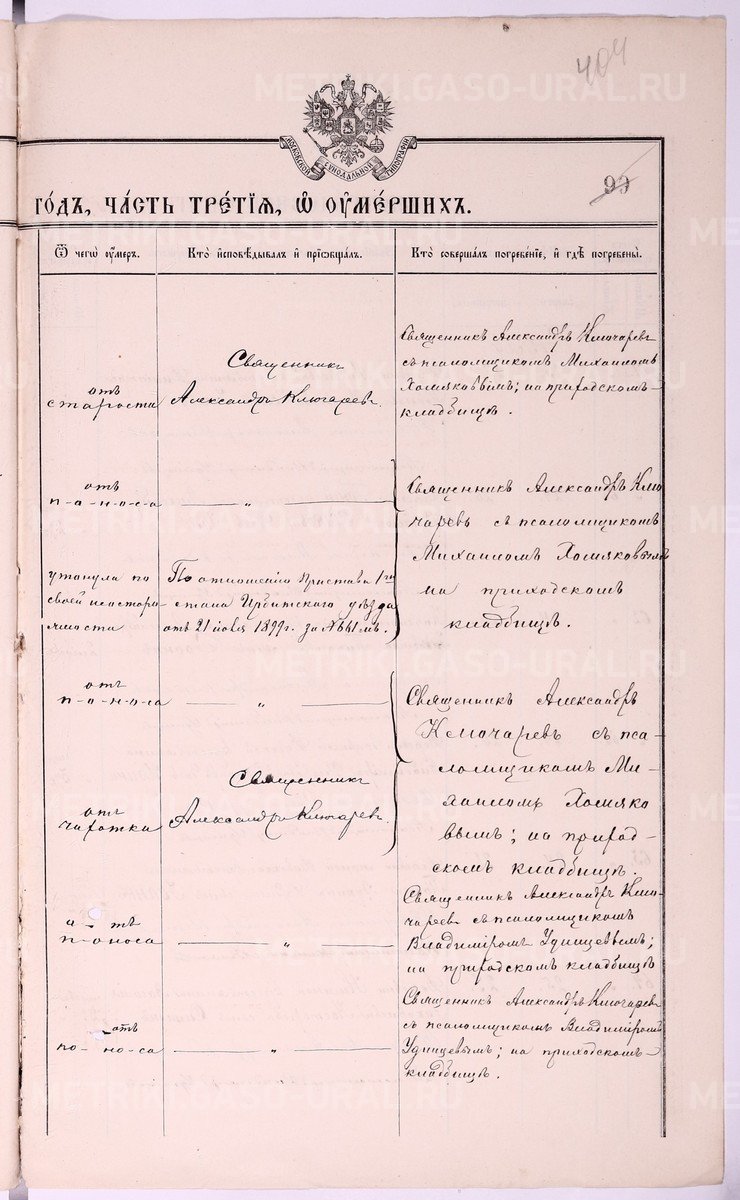 404
METRIKI.GASO-URAL.RU
МОСКОВСКОЙ СѴНОДАЛЬНОЙ ТѴПОГРАФІИ
99
ГОДЪ, ЧАСТЬ ТРЕТІЯ, Ѿ ОУМЕРШИХЪ.
Ѿ чегѡ оумеръ.
Кто исповѣдывалъ и пріобщалъ.
Кто совершалъ погребеніе, и гдѣ погребены.
отъ
старости
Священникъ
Александръ Ключаревъ
Священникъ Александръ Ключаревъ
съ псаломщикомъ Михаиломъ
Хомяковымъ; на приходскомъ
кладбищѣ.
отъ
п-о-н-о-с-а
— „ —
Священникъ Александръ Клю
чаревъ съ псаломщикомъ
Михаиломъ Хомяковымъ
на приходскомъ
кладбищѣ.
утонула по
своей неосторо
жности
По отношенію Пристава 1го
стана Ирбитскаго уѣзда
отъ 21 іюня 1899г. за №
METRIKI.GASO-URAL.RU
отъ
п-о-н-о-са
— „ —
отъ
чахотки
Священникъ
Александръ Ключаревъ
Священникъ Александръ
Ключаревъ съ пса-
ломщикомъ Ми-
хаиломъ Хомяко
вымъ; на приход-
скомъ кладбищѣ.
о-тъ
п-оноса
— „ —
Священникъ Александръ Клю-
чаревъ съ псаломщикомъ
Владиміромъ Удинцевымъ;
на приходскомъ кладбищѣ
отъ
по-носа
— „ —
Священникъ Александръ Ключаревъ
съ псаломщикомъ Владиміромъ
Удинцевымъ; на приходскомъ
кладбищѣ.
METRIKI.GASO-URAL.RU